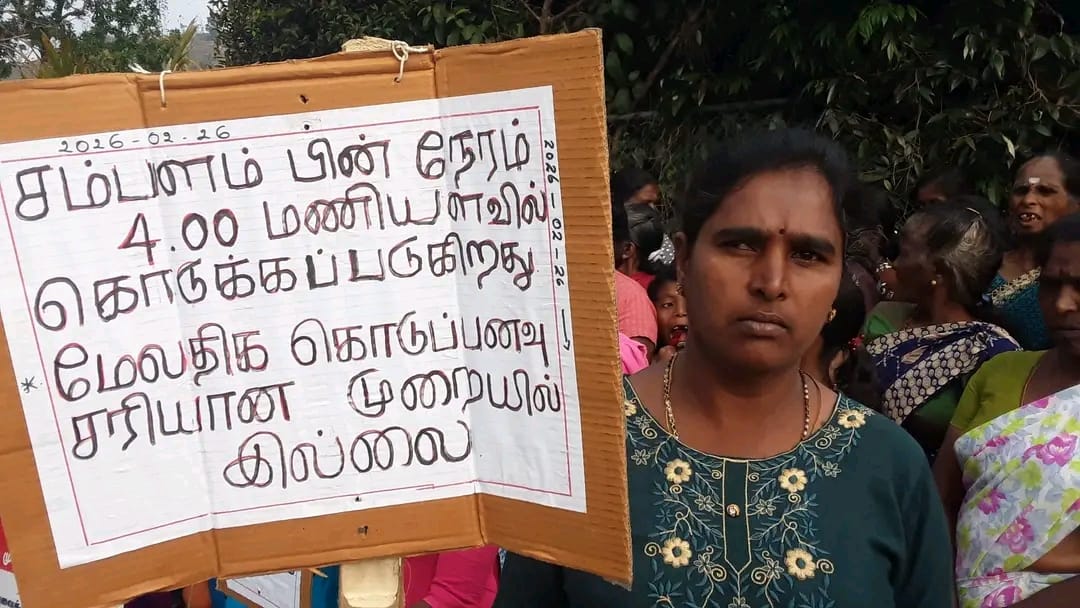 2026-02-26
சம்பளம் பின் நேரம்
4.00 மணியளவில்
கொடுக்கப்படுகிறது
* மேலதிக கொடுப்பனவு
சரியான முறையில்
கில்லை
2026-02-26